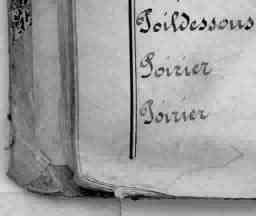 Poildessous
Poirier
Poirier